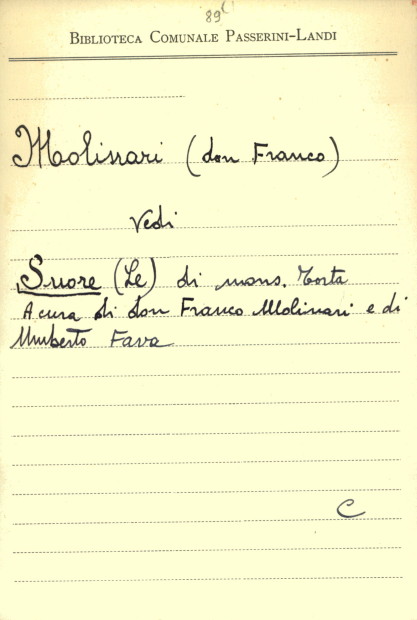 89
BIBLIOTECA COMUNALE PASSERINI-LANDI
Molinari (don Franco)
Vedi
Suore (Le) di mons. Torta
A cura di don Franco Molinari e di
Umberto Fava
C